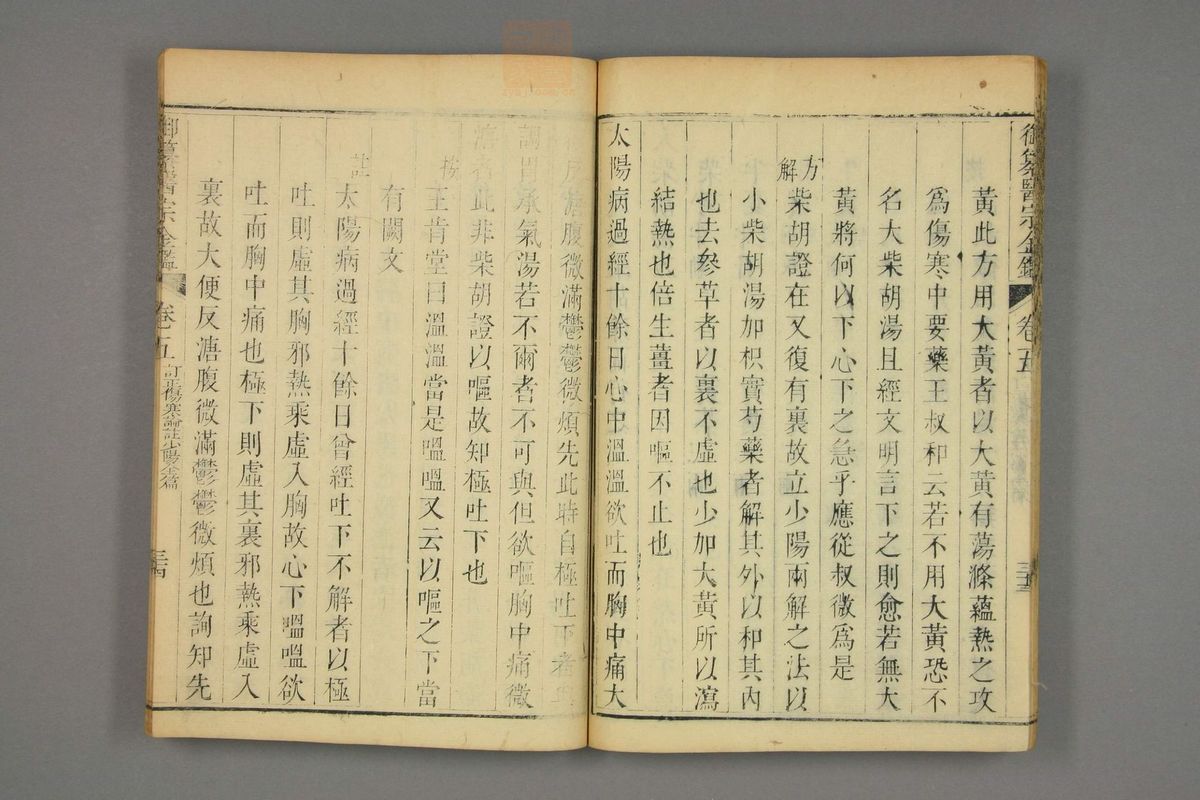 御纂醫宗金鑑 卷五
黃此方用大黃者以大黃有蕩滌蘊熱之攻
爲傷寒中要藥王叔和云若不用大黃恐不
名大柴胡湯且經文明言下之則愈若無大
黃將何以下心下之急乎應從叔微爲是
方解
柴胡證在又復有裏故立少陽兩解之法以
小柴胡湯加枳實芍藥者解其外以和其內
也去參草者以裏不虛也少加大黃所以瀉
結熱也倍生薑者因嘔不止也
太陽病過經十餘日心中溫溫欲吐而胸中痛大
便反溏腹微滿鬱鬱微煩先此時自極吐下者與
調胃承氣湯若不爾者不可與但欲嘔胸中痛微
溏者此非柴胡證以嘔故知極吐下也
按
王肯堂曰溫溫當是嗢嗢又云以嘔之下當
有闕文
註
太陽病過經十餘日曾經吐下不解者以極
吐則虛其胸邪熱乘虛入胸故心下嗢嗢欲
吐而胸中痛也極下則虛其裏邪熱乘虛入
裏故大便反溏腹微滿鬱鬱微煩也詢知先
御纂醫宗金鑑 卷五 訂正傷寒論註少陽全篇